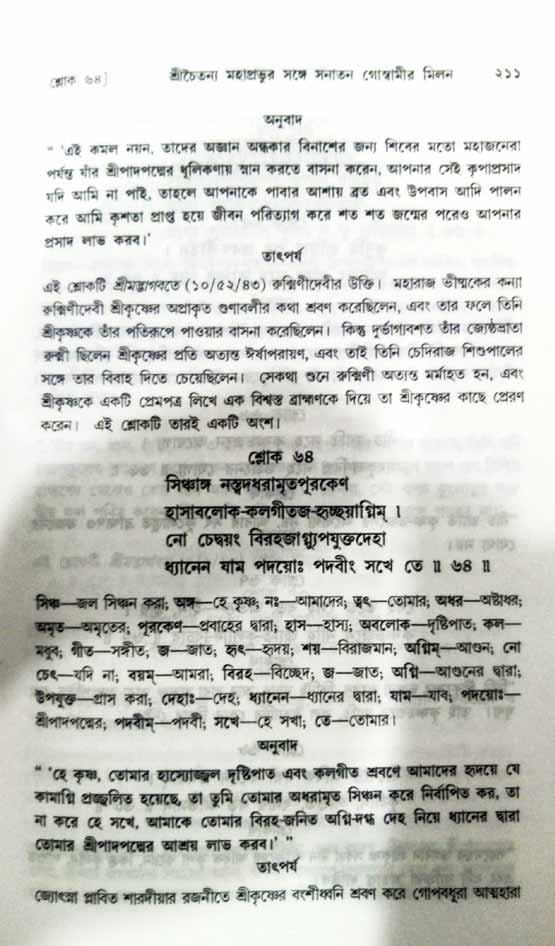 শ্লোক ৬৪]
শ্রীচৈতন্য মহাপ্রভুর সঙ্গে সনাতন গোস্বামীর মিলন
২১১
অনুবাদ
“ ‘এই কমল নয়ন, তাদের অজ্ঞান অন্ধকার বিনাশের জন্য শিবের মতো মহাজনেরা
পর্যন্ত যাঁর শ্রীপাদপদ্মের ধূলিকণায় স্নান করতে বাসনা করেন, আপনার সেই কৃপাপ্রসাদ
যদি আমি না পাই, তাহলে আপনাকে পাবার আশায় ব্রত এবং উপবাস আদি পালন
করে আমি কৃশতা প্রাপ্ত হয়ে জীবন পরিত্যাগ করে শত শত জন্মের পরেও আপনার
প্রসাদ লাভ করব।’
তাৎপর্য
এই শ্লোকটি শ্রীমদ্ভাগবতে (১০/৫২/৪৩) রুক্মিণীদেবীর উক্তি। মহারাজ ভীষ্মকের কন্যা
রুক্মিণীদেবী শ্রীকৃষ্ণের অপ্রাকৃত গুণাবলীর কথা শ্রবণ করেছিলেন, এবং তার ফলে তিনি
শ্রীকৃষ্ণকে তাঁর পতিরূপে পাওয়ার বাসনা করেছিলেন। কিন্তু দুর্ভাগ্যবশত তাঁর জ্যেষ্ঠভ্রাতা
রুক্মী ছিলেন শ্রীকৃষ্ণের প্রতি অত্যন্ত ঈর্ষাপরায়ণ, এবং তাই তিনি চেদিরাজ শিশুপালের
সঙ্গে তার বিবাহ দিতে চেয়েছিলেন। সেকথা শুনে রুক্মিণী অত্যন্ত মর্মাহত হন, এবং
শ্রীকৃষ্ণকে একটি প্রেমপত্র লিখে এক বিশ্বস্ত ব্রাহ্মণকে দিয়ে তা শ্রীকৃষ্ণের কাছে প্রেরণ
করেন। এই শ্লোকটি তারই একটি অংশ।
শ্লোক ৬৪
সিঞ্চাঙ্গ নস্ত্বদধরামৃতপূরকেণ
হাসাবলোক-কলগীতজ-হৃচ্ছয়াগ্নিম্ ।
নো চেদ্বয়ং বিরহজাগ্ন্যুপযুক্তদেহা
ধ্যানেন যাম পদয়োঃ পদবীং সখে তে ॥ ৬৪ ॥
সিঞ্চ—জল সিঞ্চন করা; অঙ্গ—হে কৃষ্ণ; নঃ—আমাদের; ত্বৎ—তোমার; অধর—অষ্টাধর;
অমৃত—অমৃতের; পূরকেণ—প্রবাহের দ্বারা; হাস—হাস্য; অবলোক—দৃষ্টিপাত; কল—
মধুর; গীত—সঙ্গীত; জ—জাত; হৃৎ—হৃদয়; শয়—বিরাজমান; অগ্নিম্—আগুন; নো
চেৎ—যদি না; বয়ম্—আমরা; বিরহ—বিচ্ছেদ; জ—জাত; অগ্নি—আগুনের দ্বারা;
উপযুক্ত—গ্রাস করা; দেহাঃ—দেহ; ধ্যানেন—ধ্যানের দ্বারা; যাম—যাব; পদয়োঃ—
শ্রীপাদপদ্মের; পদবীম্—পদবী; সখে—হে সখা; তে—তোমার।
অনুবাদ
“ ‘হে কৃষ্ণ, তোমার হাস্যোজ্জ্বল দৃষ্টিপাত এবং কলগীত শ্রবণে আমাদের হৃদয়ে যে
কামাগ্নি প্রজ্জ্বলিত হয়েছে, তা তুমি তোমার অধরামৃত সিঞ্চন করে নির্বাপিত কর, তা
না করে হে সখে, আমাকে তোমার বিরহ-জনিত অগ্নি-দগ্ধ দেহ নিয়ে ধ্যানের দ্বারা
তোমার শ্রীপাদপদ্মের আশ্রয় লাভ করব।’ ”
তাৎপর্য
জ্যোৎস্না প্লাবিত শারদীয়ার রজনীতে শ্রীকৃষ্ণের বংশীধ্বনি শ্রবণ করে গোপবধূরা আত্মহারা